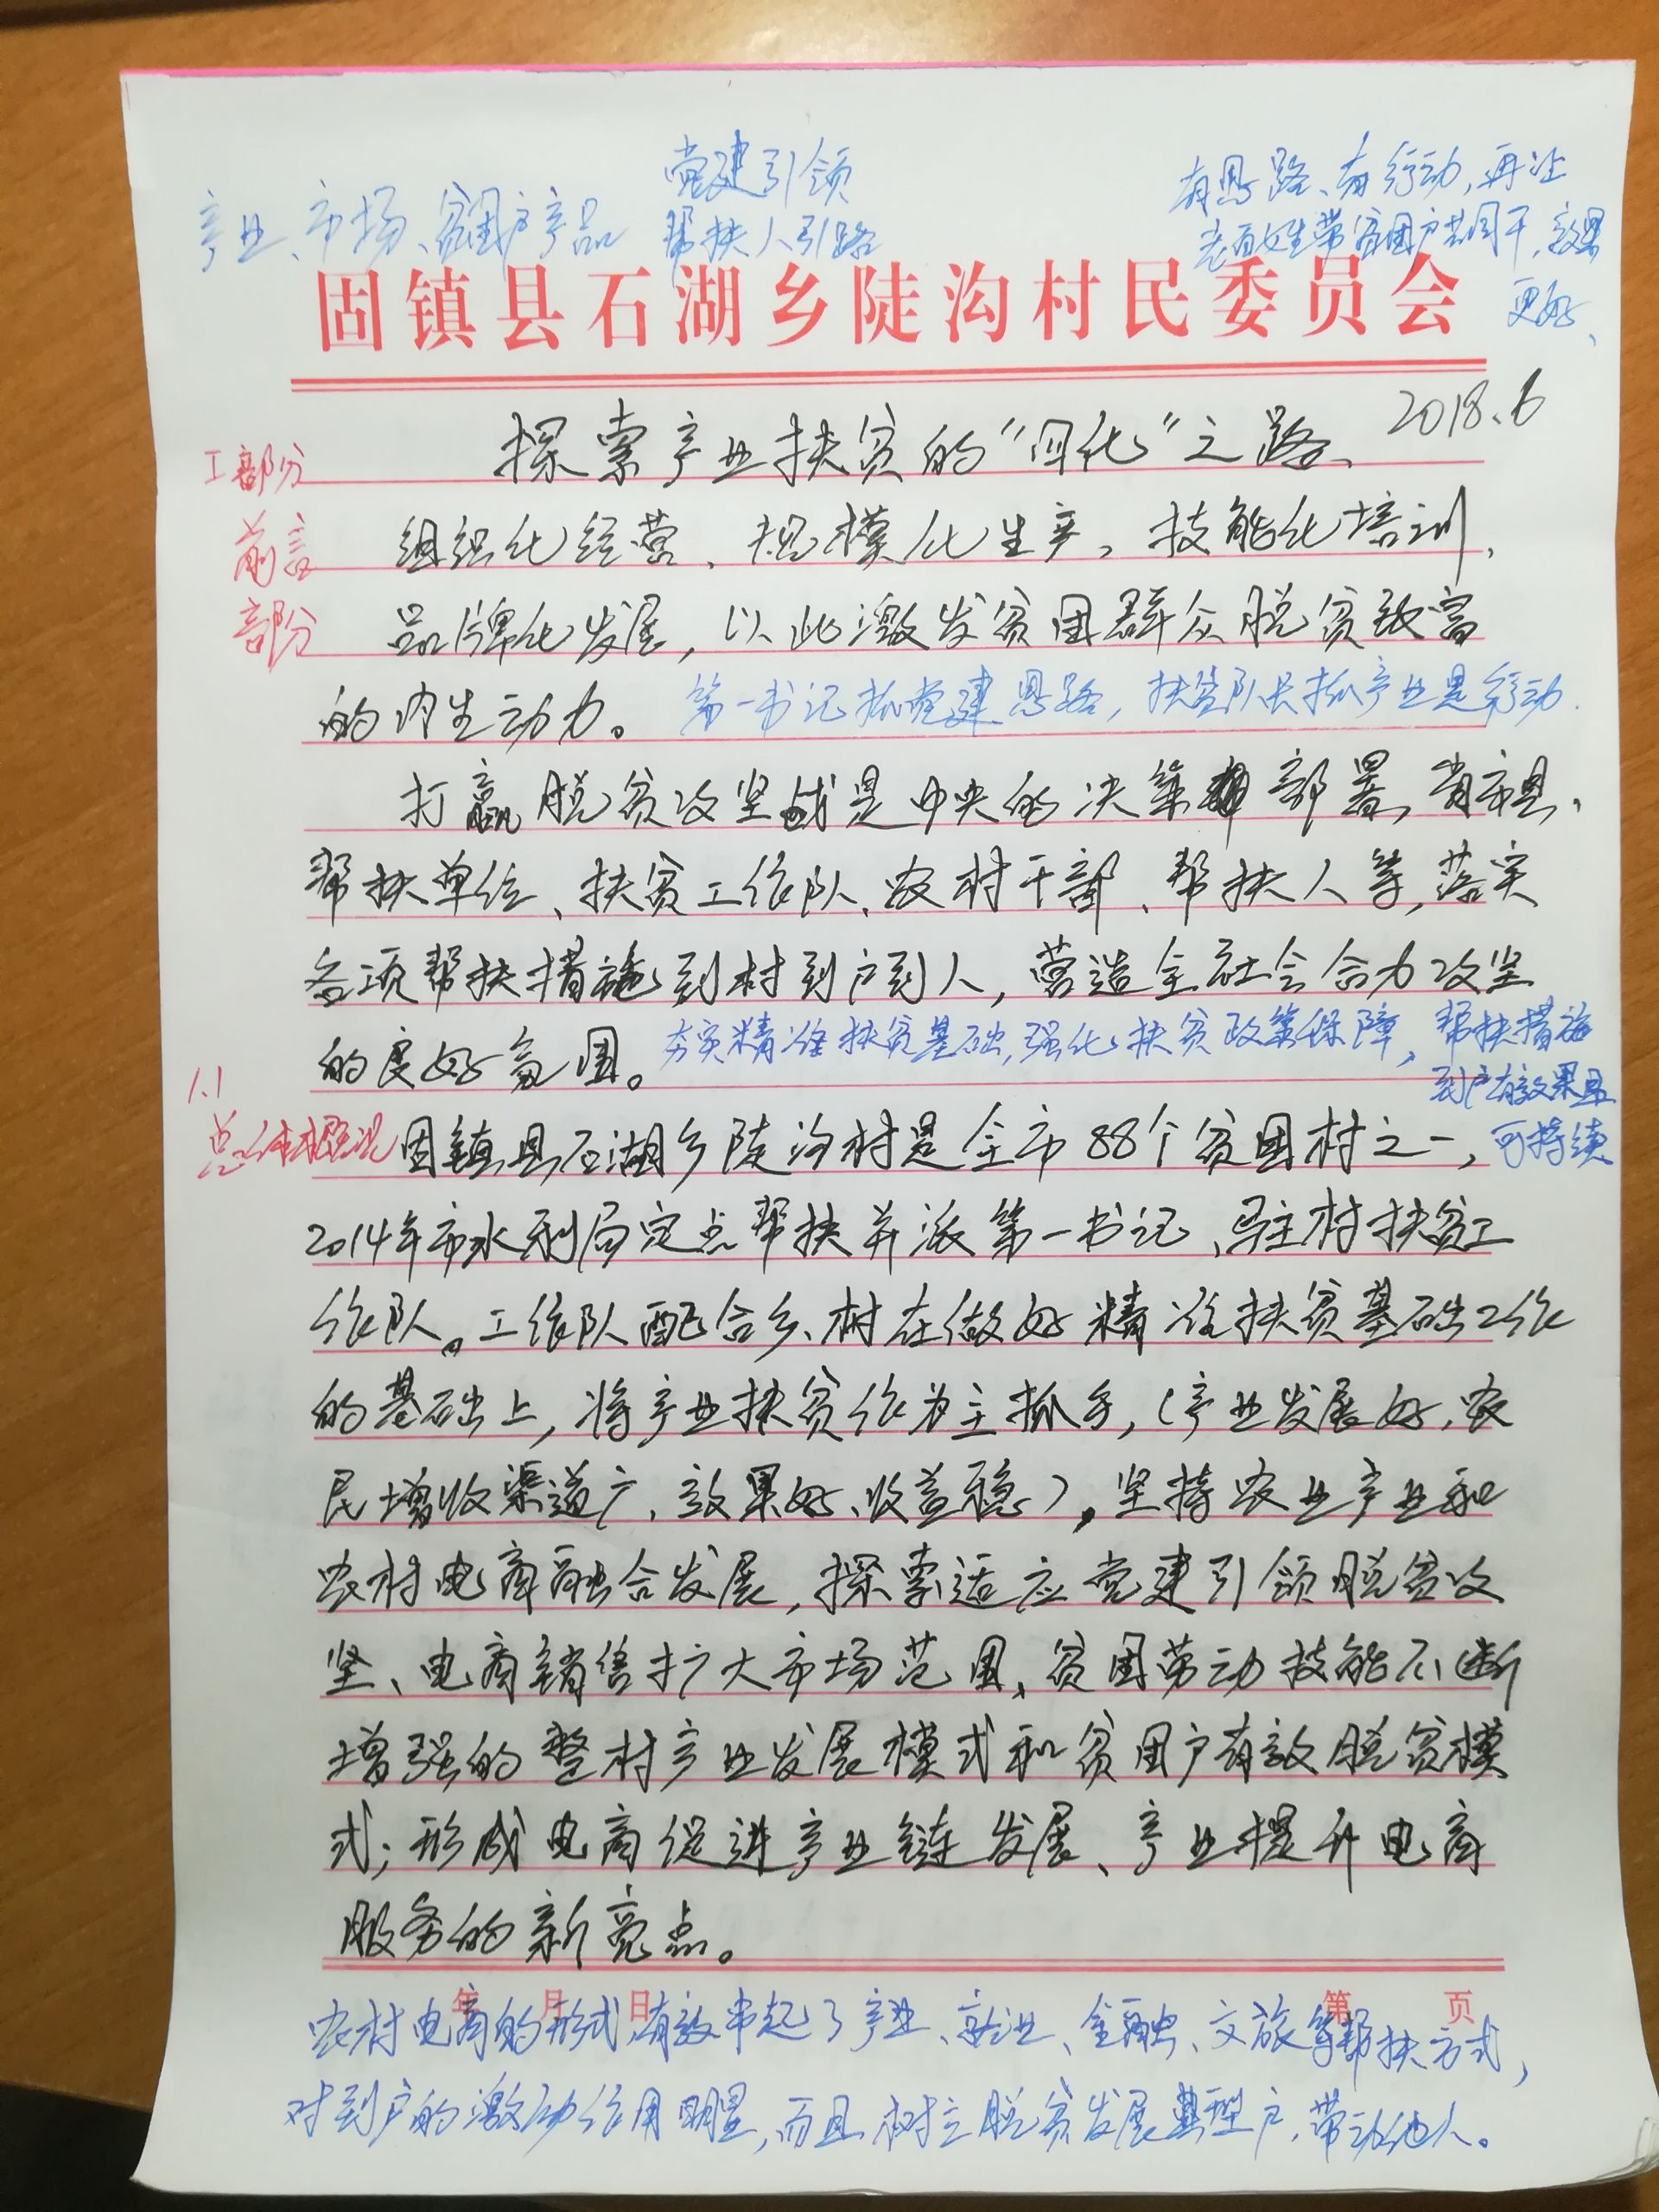 党建引领
产业、市场、贫困户产品
帮扶人引路
有思路、有行动,再让
老百姓带贫困户共同干,效果
更好、
固镇县石湖乡陡沟村民委员会
2018.6
探索产业扶贫的“四化”之路、
I部分
前言
部分
组织化经营、规模化生产、技能化培训、
品牌化发展,以此激发贫困群众脱贫致富
的内生动力。
第一书记抓党建思路,扶贫队长抓产业是行动.
打赢脱贫攻坚战是中央的决策部署,省市县、
帮扶单位、扶贫工作队、农村干部、帮扶人等,落实
各项帮扶措施到村到户到人,营造全社会合力攻坚
的良好氛围。
夯实精准扶贫基础,强化扶贫政策保障,帮扶措施
到户有效果且
可持续
1.1
总体概况
固镇县石湖乡陡沟村是全市88个贫困村之一,
2014年市水利局定点帮扶并派第一书记、驻村扶贫工
作队。工作队配合乡、村在做好精准扶贫基础工作
的基础上,将产业扶贫作为主抓手,(产业发展好,农
民增收渠道广、效果好、收益稳),坚持农业产业和
农村电商融合发展,探索适应党建引领脱贫攻
坚、电商销售扩大市场范围、贫困劳动技能不断
增强的整村产业发展模式和贫困户有效脱贫模
式;形成电商促进产业链发展、产业提升电商
服务的新亮点。
年 月 日 第 页
农村电商的形式,有效串起了产业、就业、金融、文旅等帮扶方式,
对到户的激励作用明显,而且树立脱贫发展典型户,带动他人。